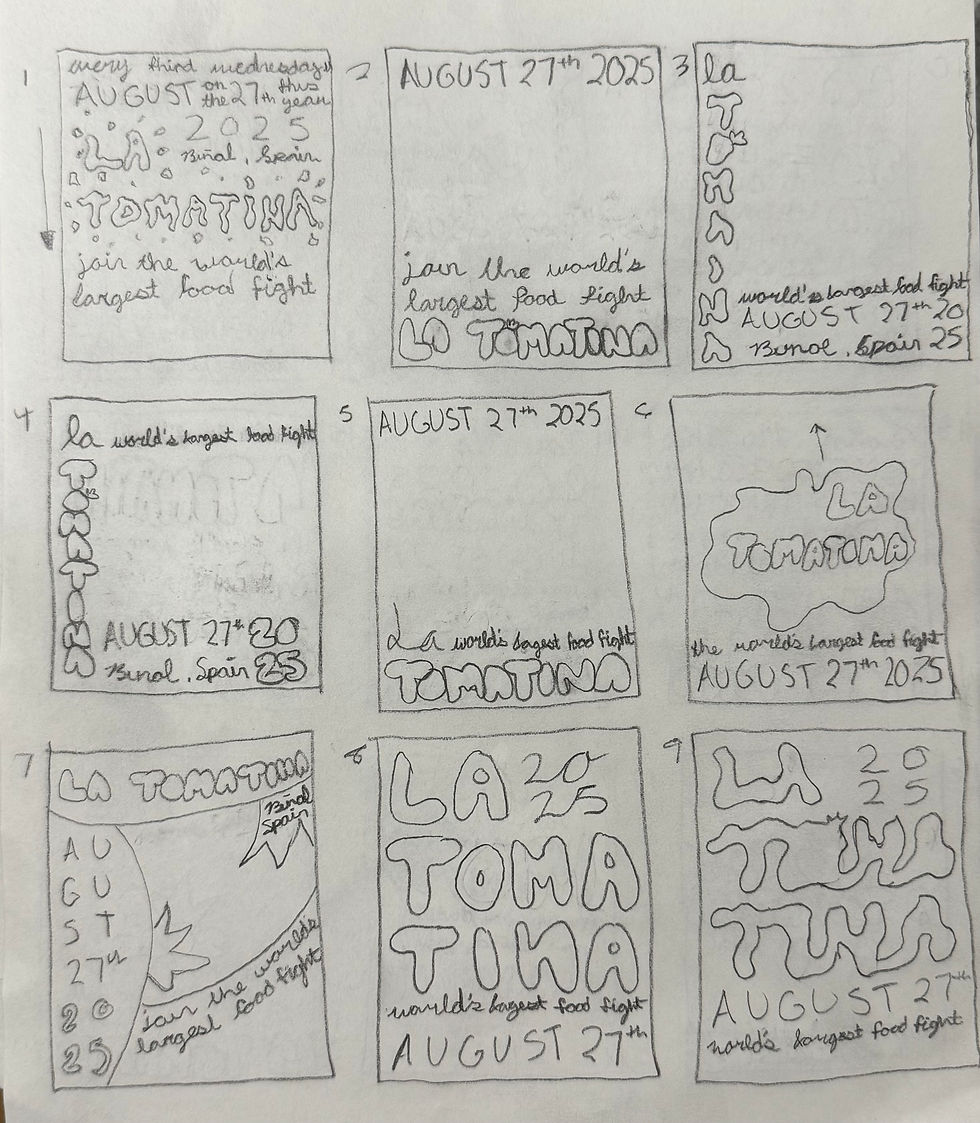 1
every third wednesday
AUGUST on the 27th this year
2025
LA
Buñol, Spain
TOMATINA
join the world's
largest food fight
2
AUGUST 27th 2025
join the world's
largest food fight
LA TOMATINA
3
la
T
O
M
A
I
N
A
world's largest food fight
AUGUST 27th 20
Bunol, Spain 25
4
la world's largest food fight
T
O
M
A
T
I
N
A
AUGUST 27th 20
Bunol, Spain 25
5
AUGUST 27th 2025
La world's largest food fight
TOMATINA
6
LA
TOMATONA
the world's largest food fight
AUGUST 27th 2025
7
LA TOMATINA
Buñol
Spain
AU
GU
ST
27th
20
25
join the world's
largest food fight
8
LA 20
25
TOMA
TINA
world's largest food fight
AUGUST 27th
9
LA 20
25
TOMA
TINA
AUGUST 27th
world's largest food fight